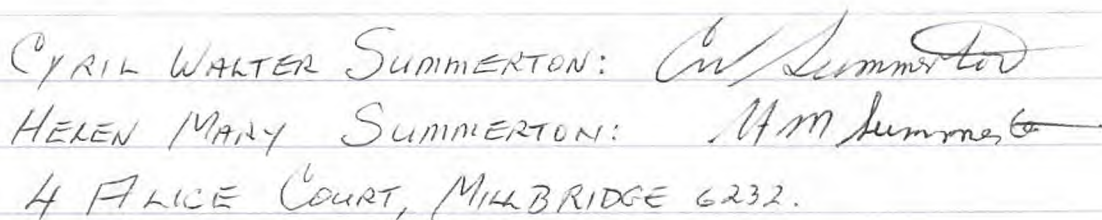 CYRIL WALTER SUMMERTON: CW Summerton
HELEN MARY SUMMERTON: HM Summerto
4 ALICE COURT, MILLBRIDGE 6232.